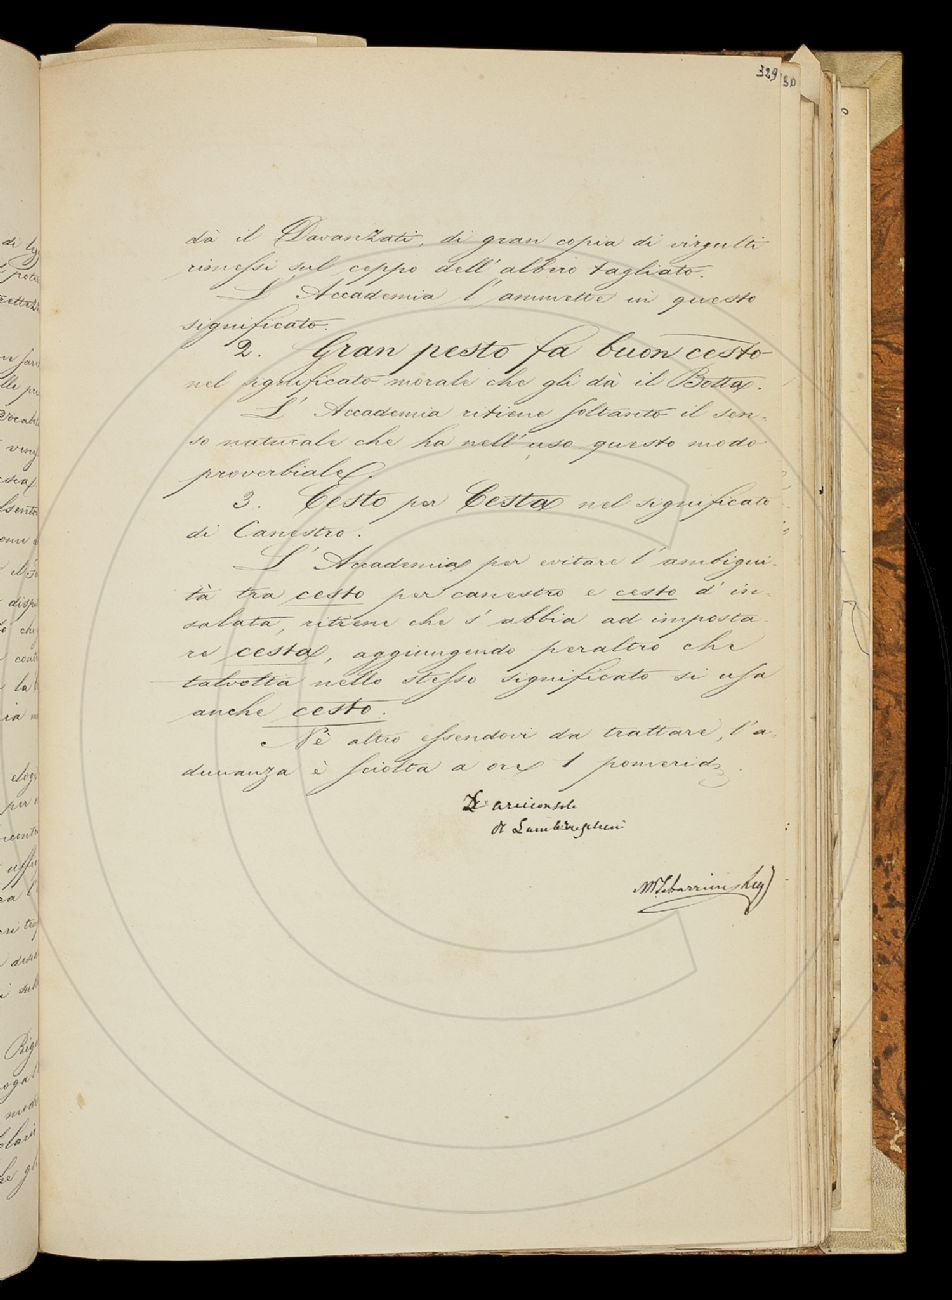 329
dà il Davanzati, di gran copia di virgulti
rimessi sul ceppo dell'albero tagliato.
L'Accademia l'ammette in questo
significato.
2. Gran pesto fa buon cesto
nel significato morale che gli dà il Botta.
L'Accademia ritiene soltanto il sen-
so naturale che ha nell'uso questo modo
proverbiale.
3. Cesto per Cesta nel significato
di Canestro.
L'Accademia per evitare l'ambigui-
tà tra cesto per canestro e cesto d'in-
salata, ritiene che s'abbia ad imposta-
re cesta, aggiungendo peraltro che
talvolta nello stesso significato si usa
anche cesto.
Nè altro essendovi da trattare, l'a-
dunanza è sciolta a ore 1 pomerid.